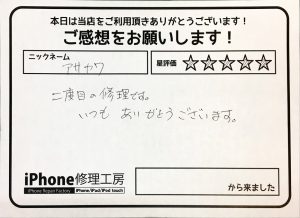 本日は当店をご利用頂きありがとうございます！
ご感想をお願いします！
ニックネーム
アサカワ
星評価 ☆☆☆☆☆
二度目の修理です。
いつも ありがとうございます。
iPhone修理工房
iPhone Repair Factory iPhone/iPad/iPod touch
から来ました